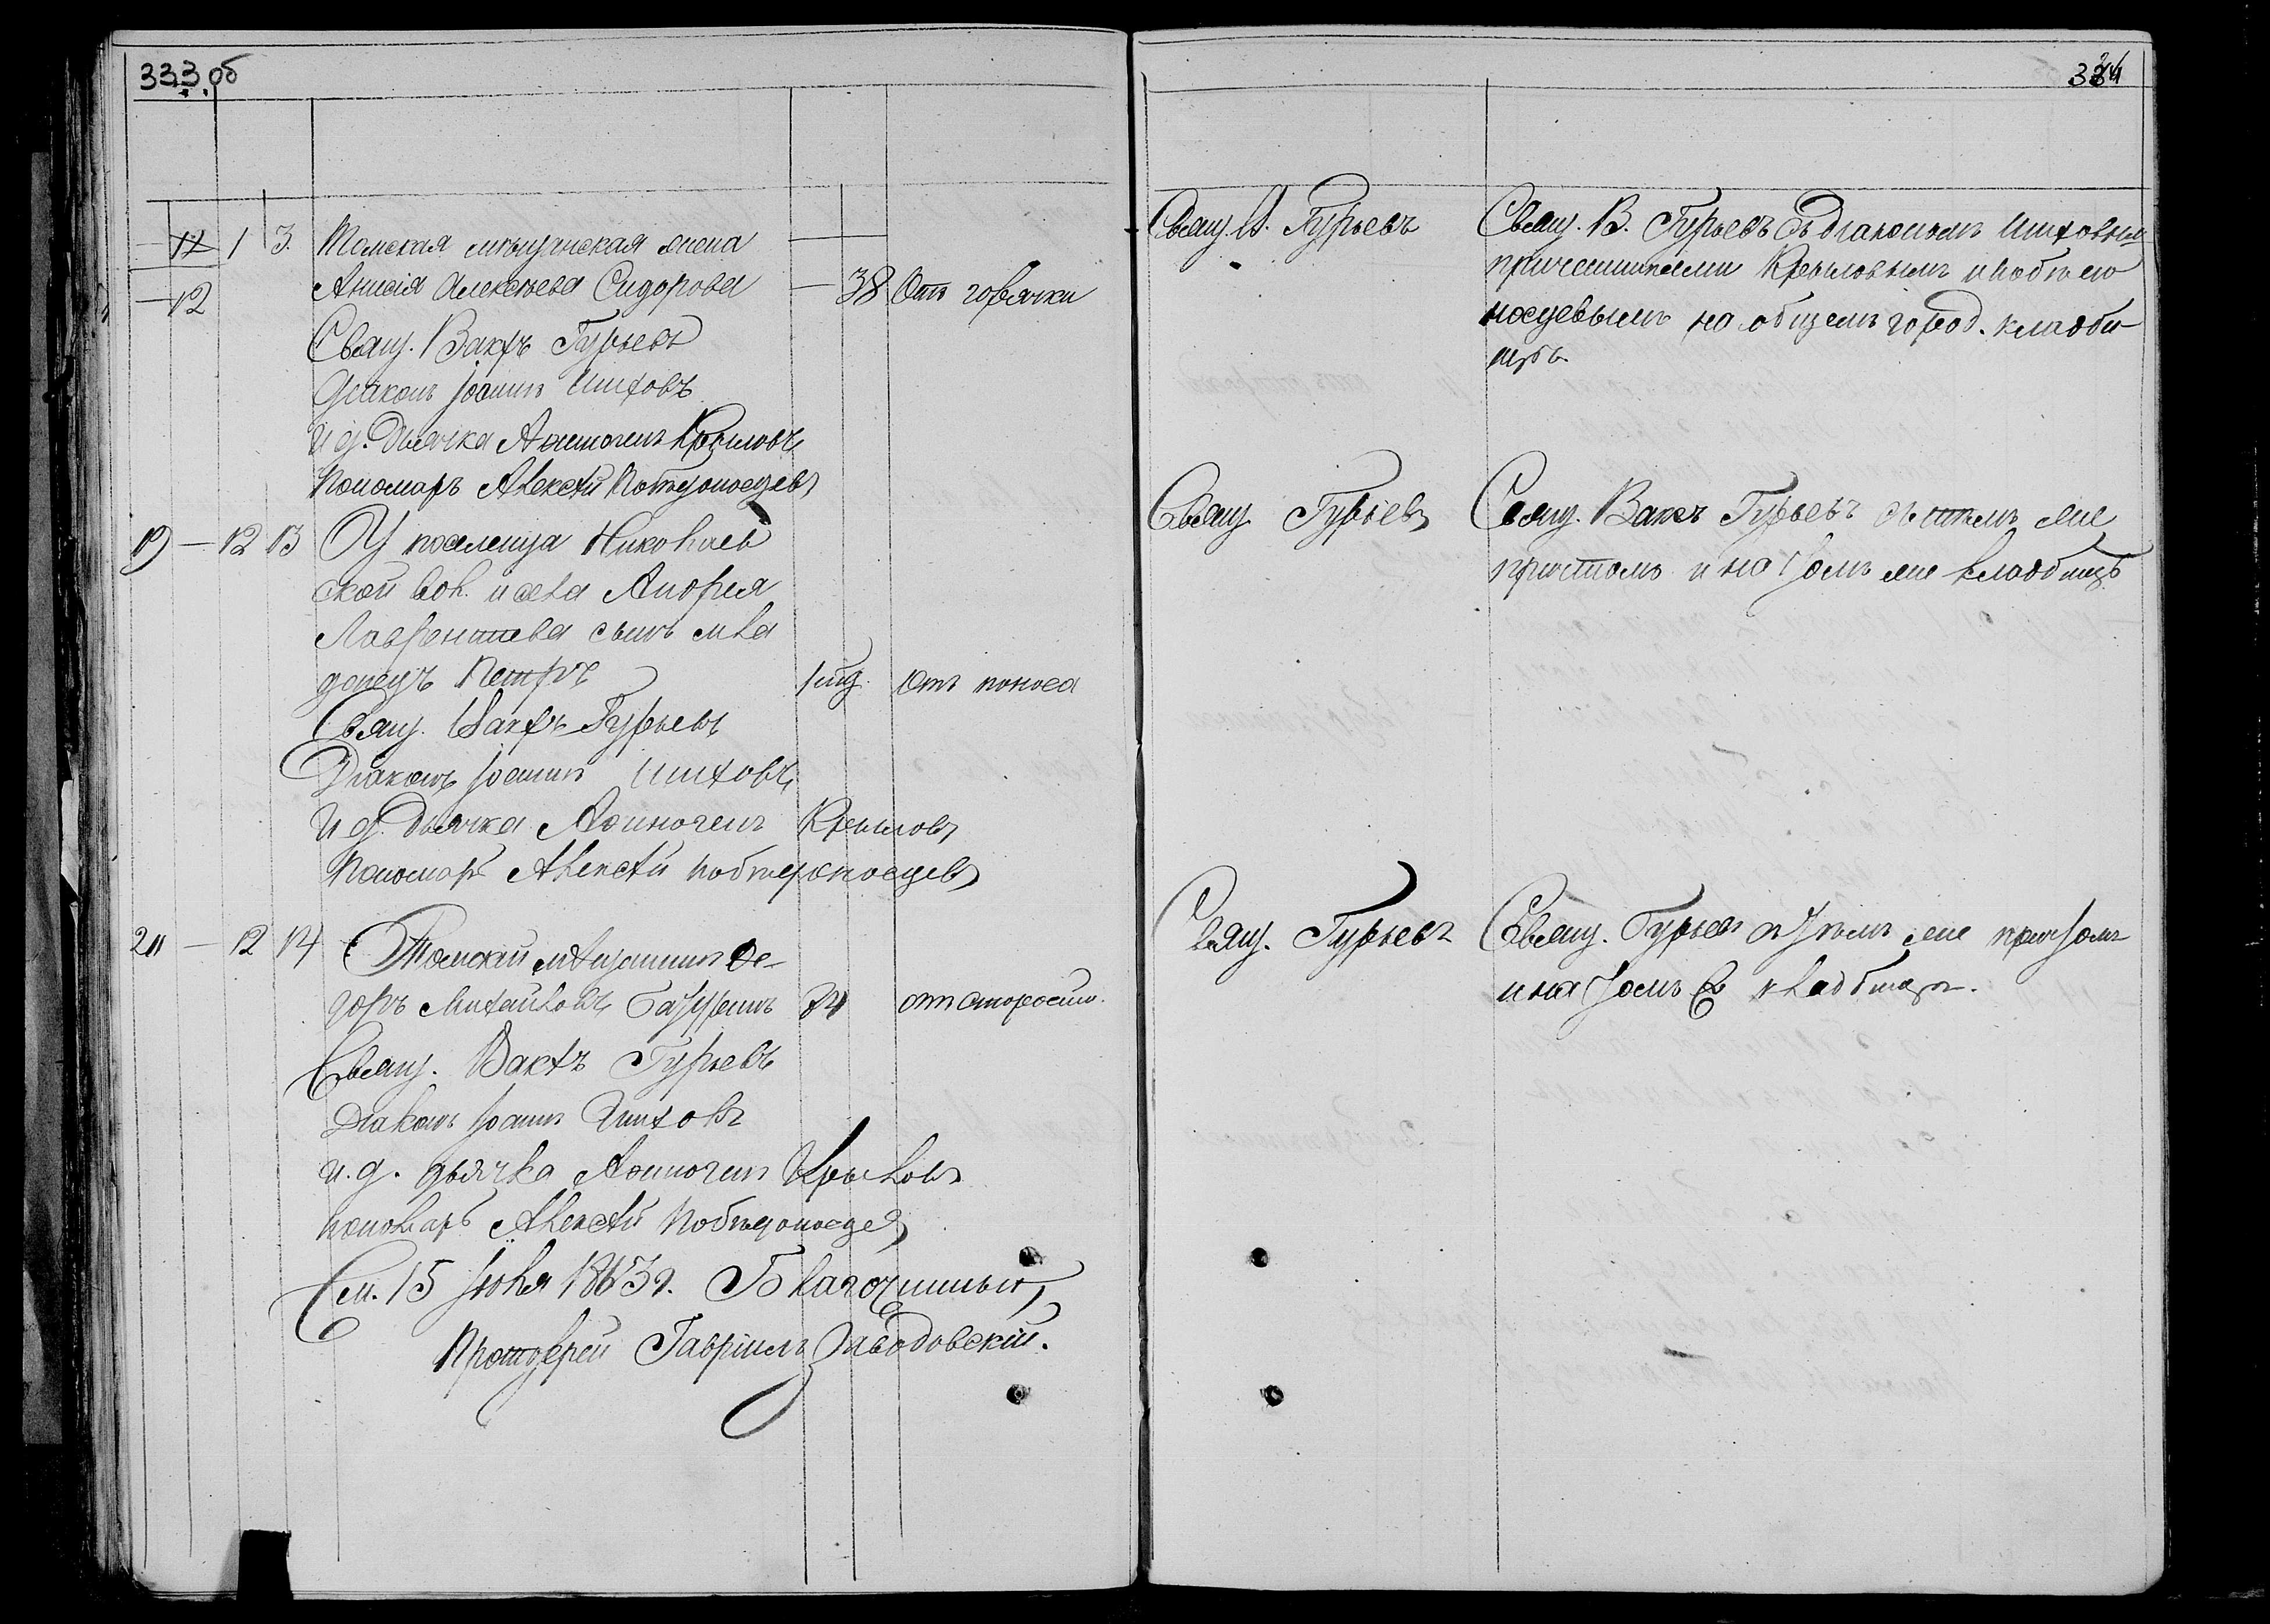 333 об
12 1 3 Томская мѣщанская жена
Анисія Алексѣева Сидорова — 38 Отъ горячки
— 12
Свящ. Вакхъ Гурьевъ
Діаконъ Іоаннъ Шиховъ
И. д. дьячка Аѳиногенъ Крыловъ
Пономарь Алексѣй Побѣдоносцевъ
19 — 12 13 У поселенца Николаев
ской вол. и села Андрея
Лаврентіева сынъ мла
денецъ Петръ 1 год. Отъ поноса
Свящ. Вакхъ Гурьевъ
Діаконъ Іоаннъ Шиховъ
И. д. дьячка Аѳиногенъ Крыловъ
Пономарь Алексѣй Побѣдоносцевъ
20 — 12 14 Томскій мѣщанинъ Ѳе-
доръ Михайловъ 74 отъ старости.
Свящ. Вакхъ Гурьевъ
Діаконъ Іоаннъ Шиховъ
и. д. дьячка Аѳиногенъ Крыловъ
пономарь Алексѣй Побѣдоносцевъ
См. 15 Іюля 1863 г. Благочинный,
Протоіерей Гавріилъ Заводовскій.
334
Свящ. В. Гурьевъ
Свящ. В. Гурьевъ съ діакономъ Шиховымъ
причетниками Крыловымъ и Побѣдо
носцевымъ на общемъ город. кладби
щѣ.
Свящ. Гурьевъ
Свящ. Вакхъ Гурьевъ съ тѣмъ же
причтомъ и на томъ же кладбищѣ
Свящ. Гурьевъ
Свящ. Гурьевъ съ тѣмъ же причтомъ
и на томъ же кладбищѣ.